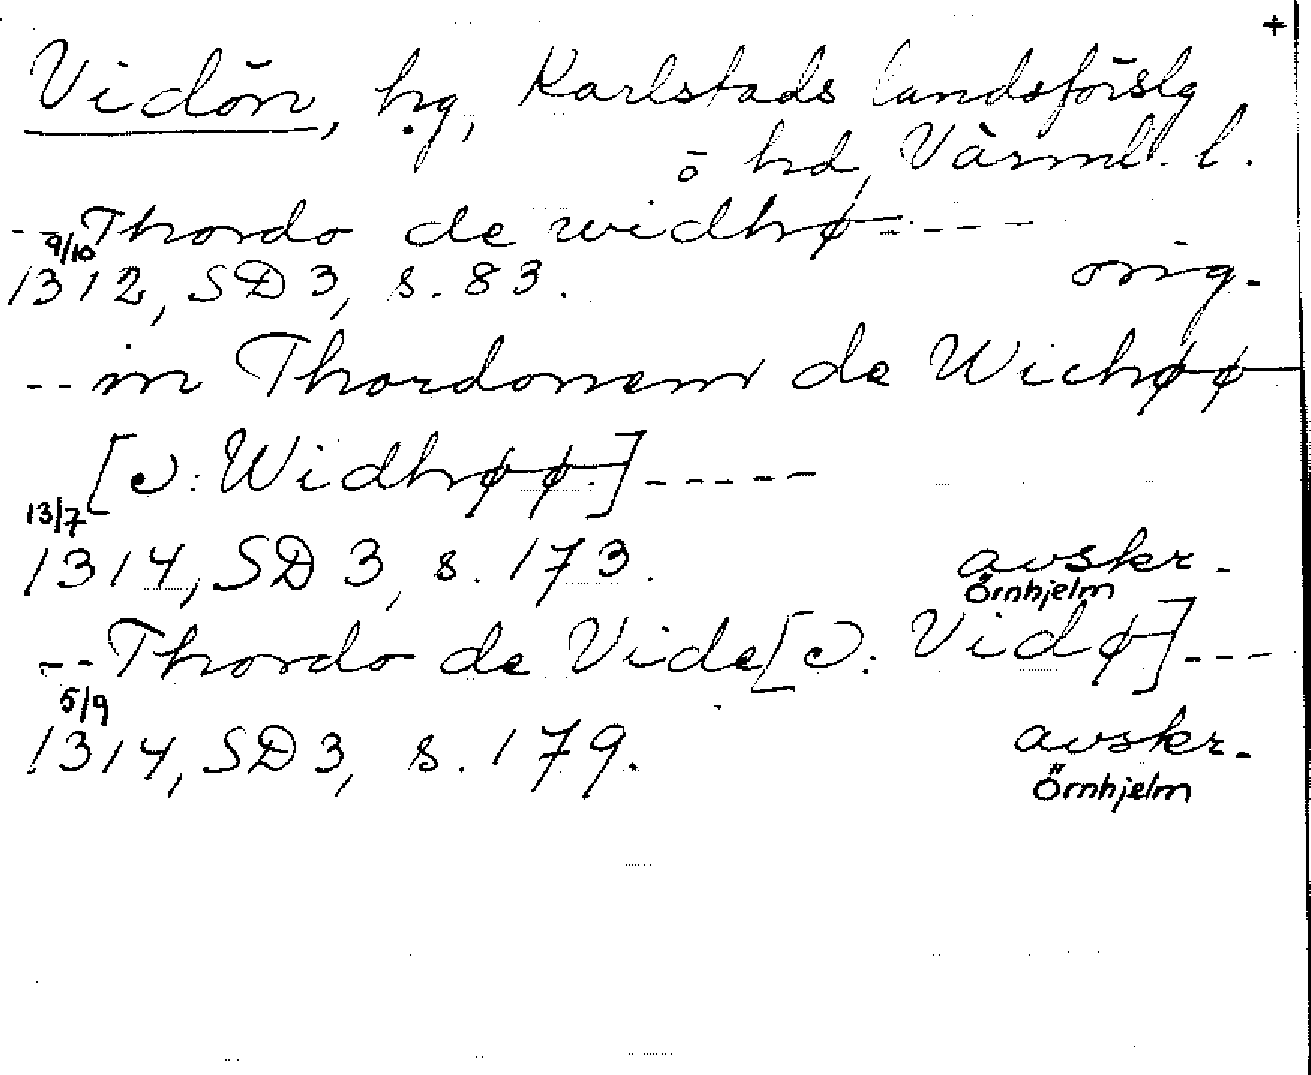 +
Vidön, hg, Karlstads landsförslg
o hd, Värml. l.
-- Thordo de widhø ----
9/10
1312, SD 3, s. 83. orig.
-- in Thordonem de Wichøø
[ɔ: Widhøø.] -----
13/7
1314, SD 3, s. 173. avskr.
Örnhjelm
-- Thordo de Vide [ɔ: Vidø] ---
5/9
1314, SD 3, s. 179. avskr.
Örnhjelm